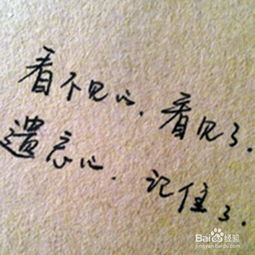 看不见心，看见了．
遗忘心．记住了．
Bai 百度 经验